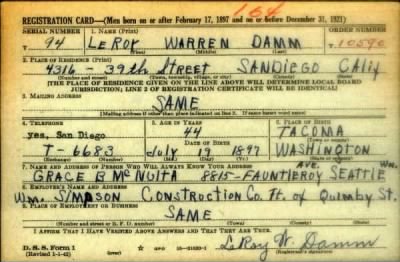 164
REGISTRATION CARD—(Men born on or after February 17, 1897 and on or before December 31, 1921)
SERIAL NUMBER 1. NAME (Print) ORDER NUMBER
T 94 LEROY WARREN DAMM T 10590
(First) (Middle) (Last)
2. PLACE OF RESIDENCE (Print)
4316 - 39th Street SANDIEGO CALIF
(Number and street) (Town, township, village, or city) (County) (State)
[THE PLACE OF RESIDENCE GIVEN ON THE LINE ABOVE WILL DETERMINE LOCAL BOARD
JURISDICTION; LINE 2 OF REGISTRATION CERTIFICATE WILL BE IDENTICAL]
3. MAILING ADDRESS
SAME
[Mailing address if other than place indicated on line 2. If same insert word same]
4. TELEPHONE 5. AGE IN YEARS 6. PLACE OF BIRTH
yes, San Diego 44 TACOMA
DATE OF BIRTH (Town or county)
T-6683 July 19 1897 WASHINGTON
(Exchange) (Number) (Mo.) (Day) (Yr.) (State or country)
7. NAME AND ADDRESS OF PERSON WHO WILL ALWAYS KNOW YOUR ADDRESS AVE.
GRACE B McNULTA 8815-FAUNTLEROY SEATTLE Wn.
8. EMPLOYER'S NAME AND ADDRESS
Wm. SIMPSON CONSTRUCTION Co. Ft. of Quimby St.
9. PLACE OF EMPLOYMENT OR BUSINESS
SAME
(Number and street or R. F. D. number) (Town) (County) (State)
I AFFIRM THAT I HAVE VERIFIED ABOVE ANSWERS AND THAT THEY ARE TRUE.
D. S. S. Form 1
(Revised 1-1-42) (over) GPO 16—21630-1 LeRoy W. Damm